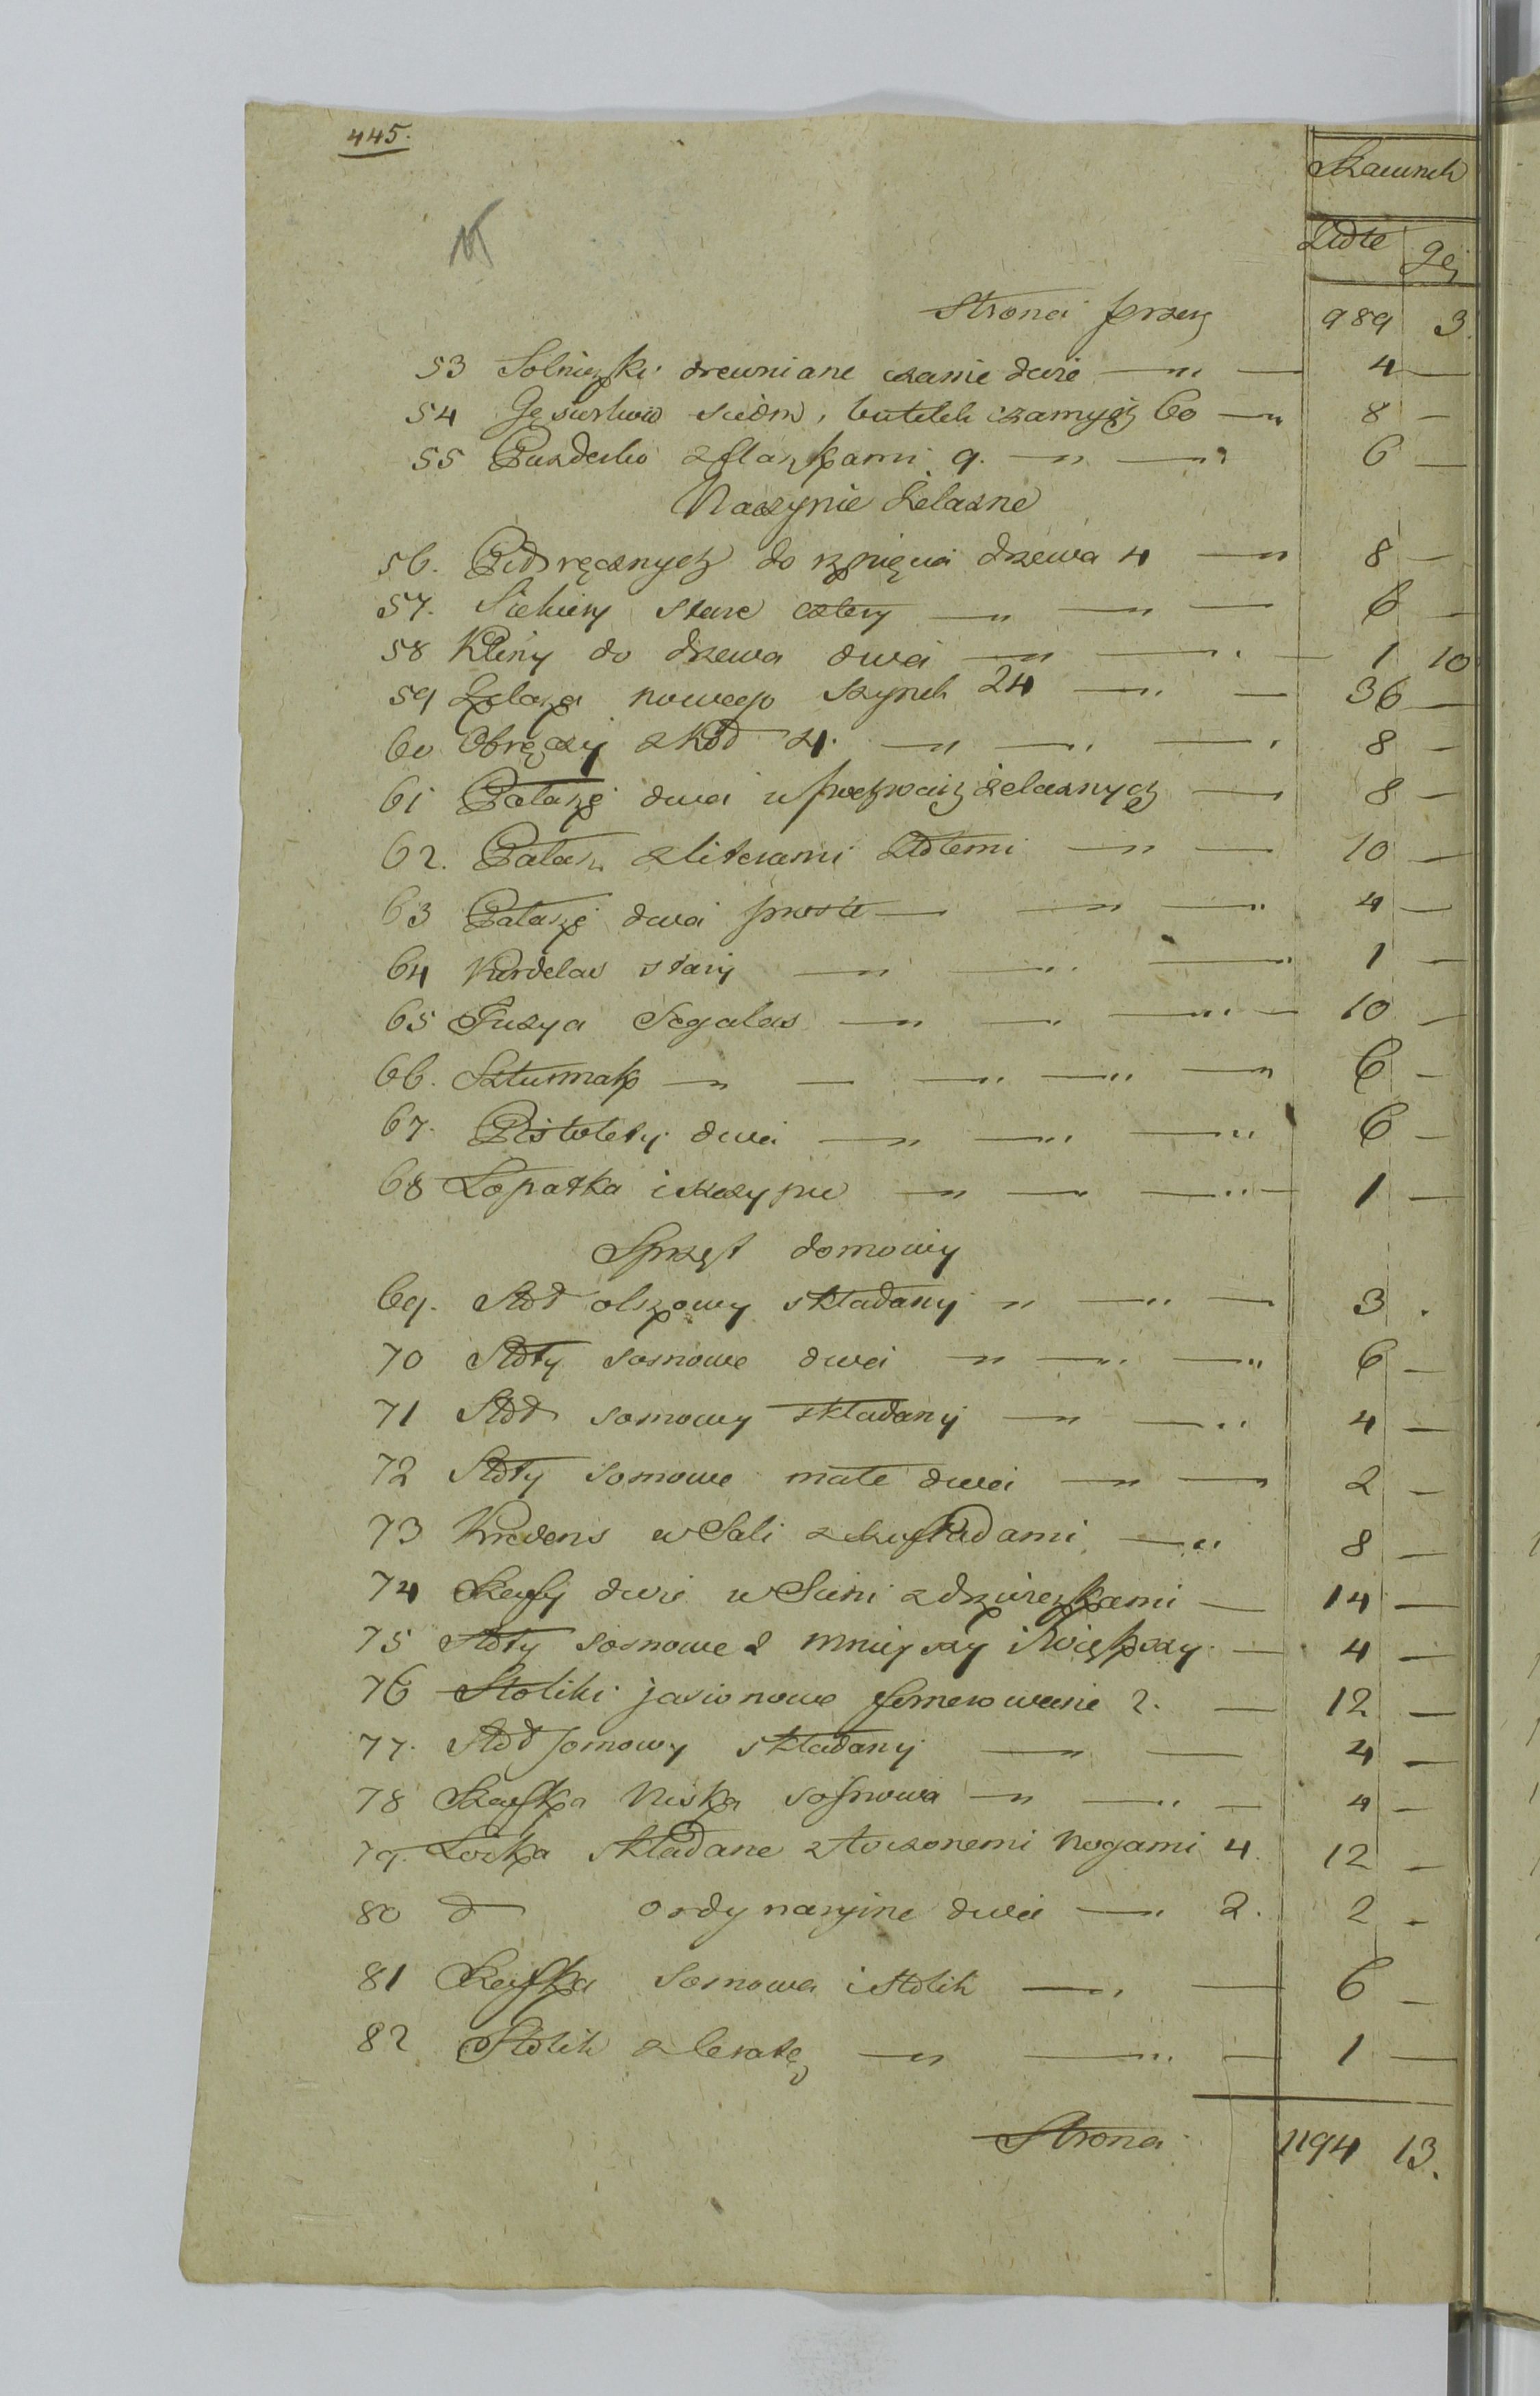 445.
Szacunek
Złote gr
Strona przen 989 3.
53 Solniczki drewniane czarne dwie 4 —
54 Gęsiorków siedm, butelek czarnych 60 8 —
55 Puzderko z flaszkami 9. 6 —
Naczynie Żelazne
56. Pił ręcznych do rznięcia drzewa 4 8 —
57. Siekiery stare cztery 6 —
58 Kliny do drzewa dwa 1 10
59 Żelaza nowego szynek 24 36 —
60 Obręczy z kół 4. 8 —
61 Pałasze dwa w pochwach żelaznych 8 —
62. Pałasz z literami złotemi 10 —
63 Pałasze dwa proste 4 —
64 Kordelas stary 1 —
65 Fuzya Segalas 10 —
66. Szturmak 6 —
67. Pistolety dwa 6 —
68 Łopatka i szczypce 1 —
Sprzęt domowy
69. Stół olszowy składany 3 .
70 Stoły sosnowe dwa 6 —
71 Stół sosnowy składany 4 —
72 Stoły sosnowe małe dwa 2 —
73 Kredens w Sali z szufladami 8 —
74 Szafy dwie w Sieni z drzwiczkami 14 —
75 Stoły sosnowe 2 mnieyszy i większy 4 —
76 Stoliki jasionowe fornerowane 2. 12 —
77. Stół sosnowy składany 4 —
78 Szafka niska sosnowa 4 —
79. Łóżka składane z toczonemi nogami 4. 12 —
80 d ordynaryine dwa 2. 2 —
81 Szafka sosnowa i stolik 6 —
82 Stolik z ceratą 1 —
Strona 1194 13.